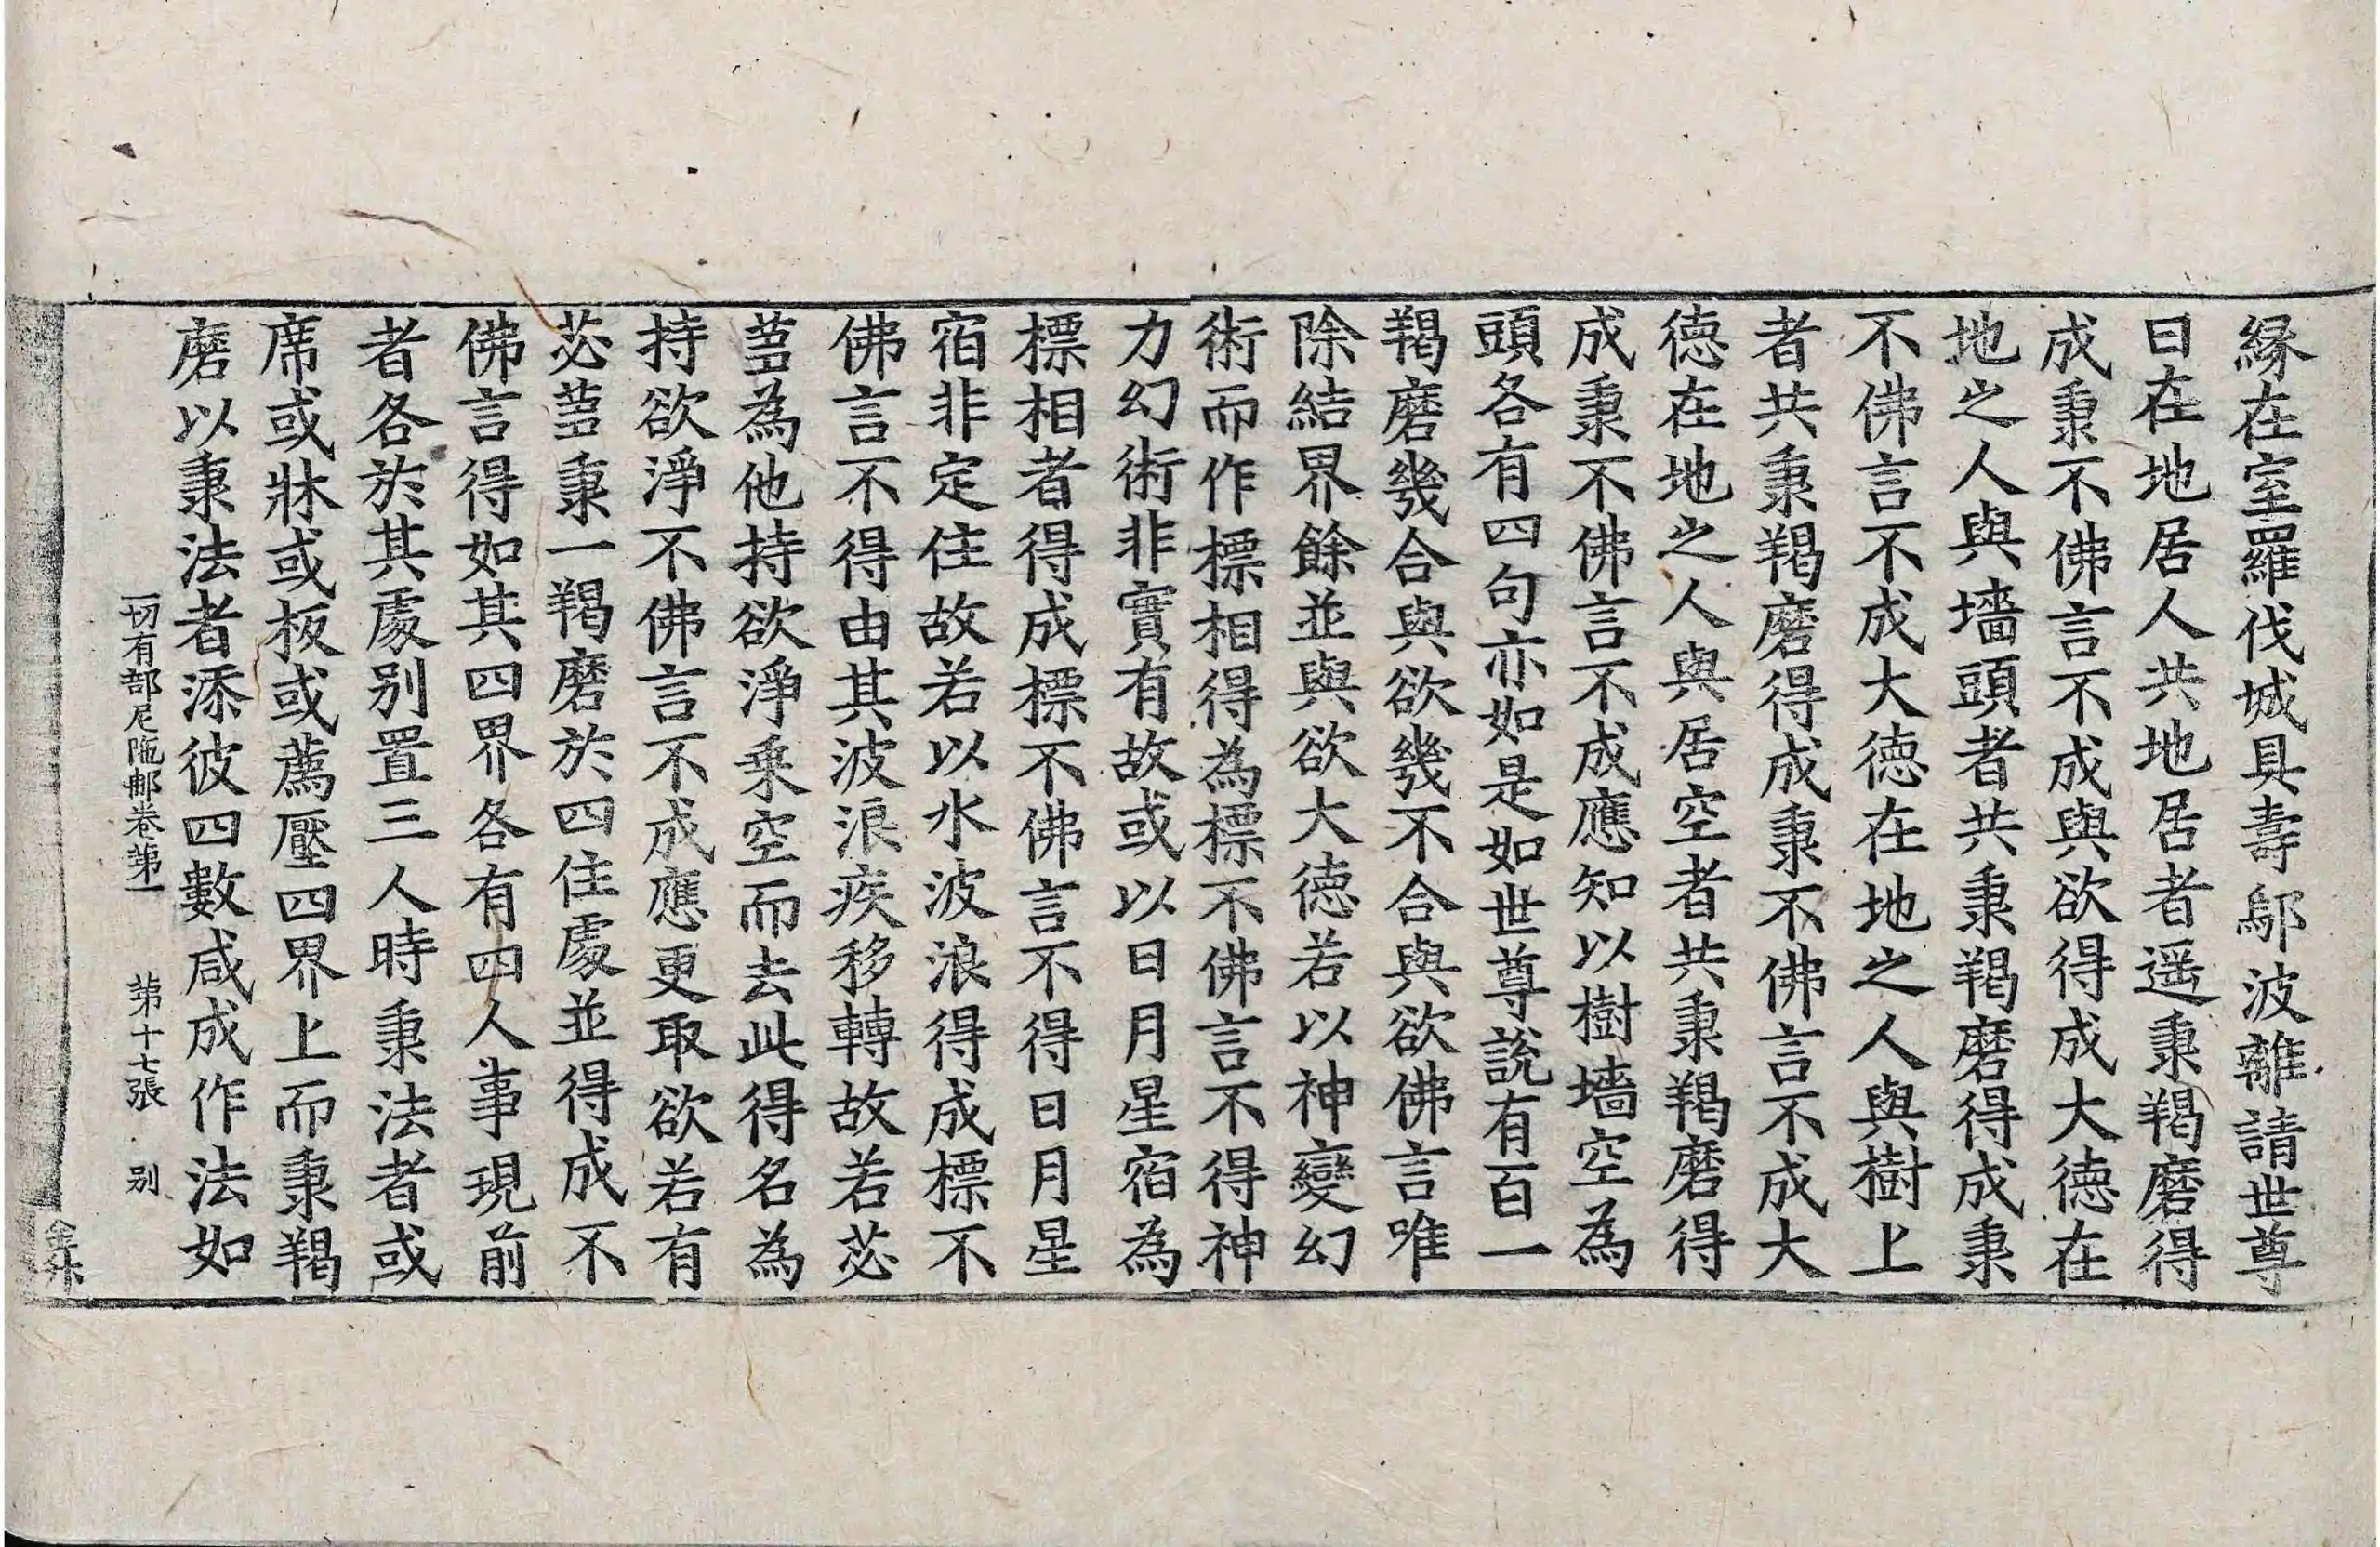 縁在室羅伐城具壽鄔波離請世尊
曰在地居人共地居者遥秉羯磨得
成秉不佛言不成與欲得成大德在
地之人與墻頭者共秉羯磨得成秉
不佛言不成大德在地之人與樹上
者共秉羯磨得成秉不佛言不成大
德在地之人與居空者共秉羯磨得
成秉不佛言不成應知以樹墻空為
頭各有四句亦如是如世尊說有百一
羯磨幾合與欲幾不合與欲佛言唯
除結界餘並與欲大德若以神變幻
術而作標相得為標不佛言不得神
力幻術非實有故或以日月星宿為
標相者得成標不佛言不得日月星
宿非定住故若以水波浪得成標不
佛言不得由其波浪疾移轉故若苾
蒭為他持欲淨乗空而去此得名為
持欲淨不佛言不成應更取欲若有
苾蒭秉一羯磨於四住處並得成不
佛言得如其四界各有四人事現前
者各於其處别置三人時秉法者或
席或牀或板或薦壓四界上而秉羯
磨以秉法者添彼四數咸成作法如
一切有部尼陁那卷第一 第十七張 别